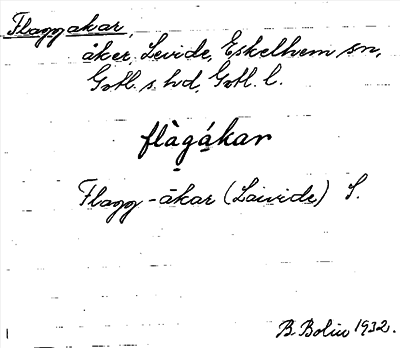 Flaggakar,
åker, Levide, Eskelhem sn,
Gotl. s. hd, Gotl. l.
flàgákar
Flagg-ākar (Laivide) S.
B Bolin 1932.